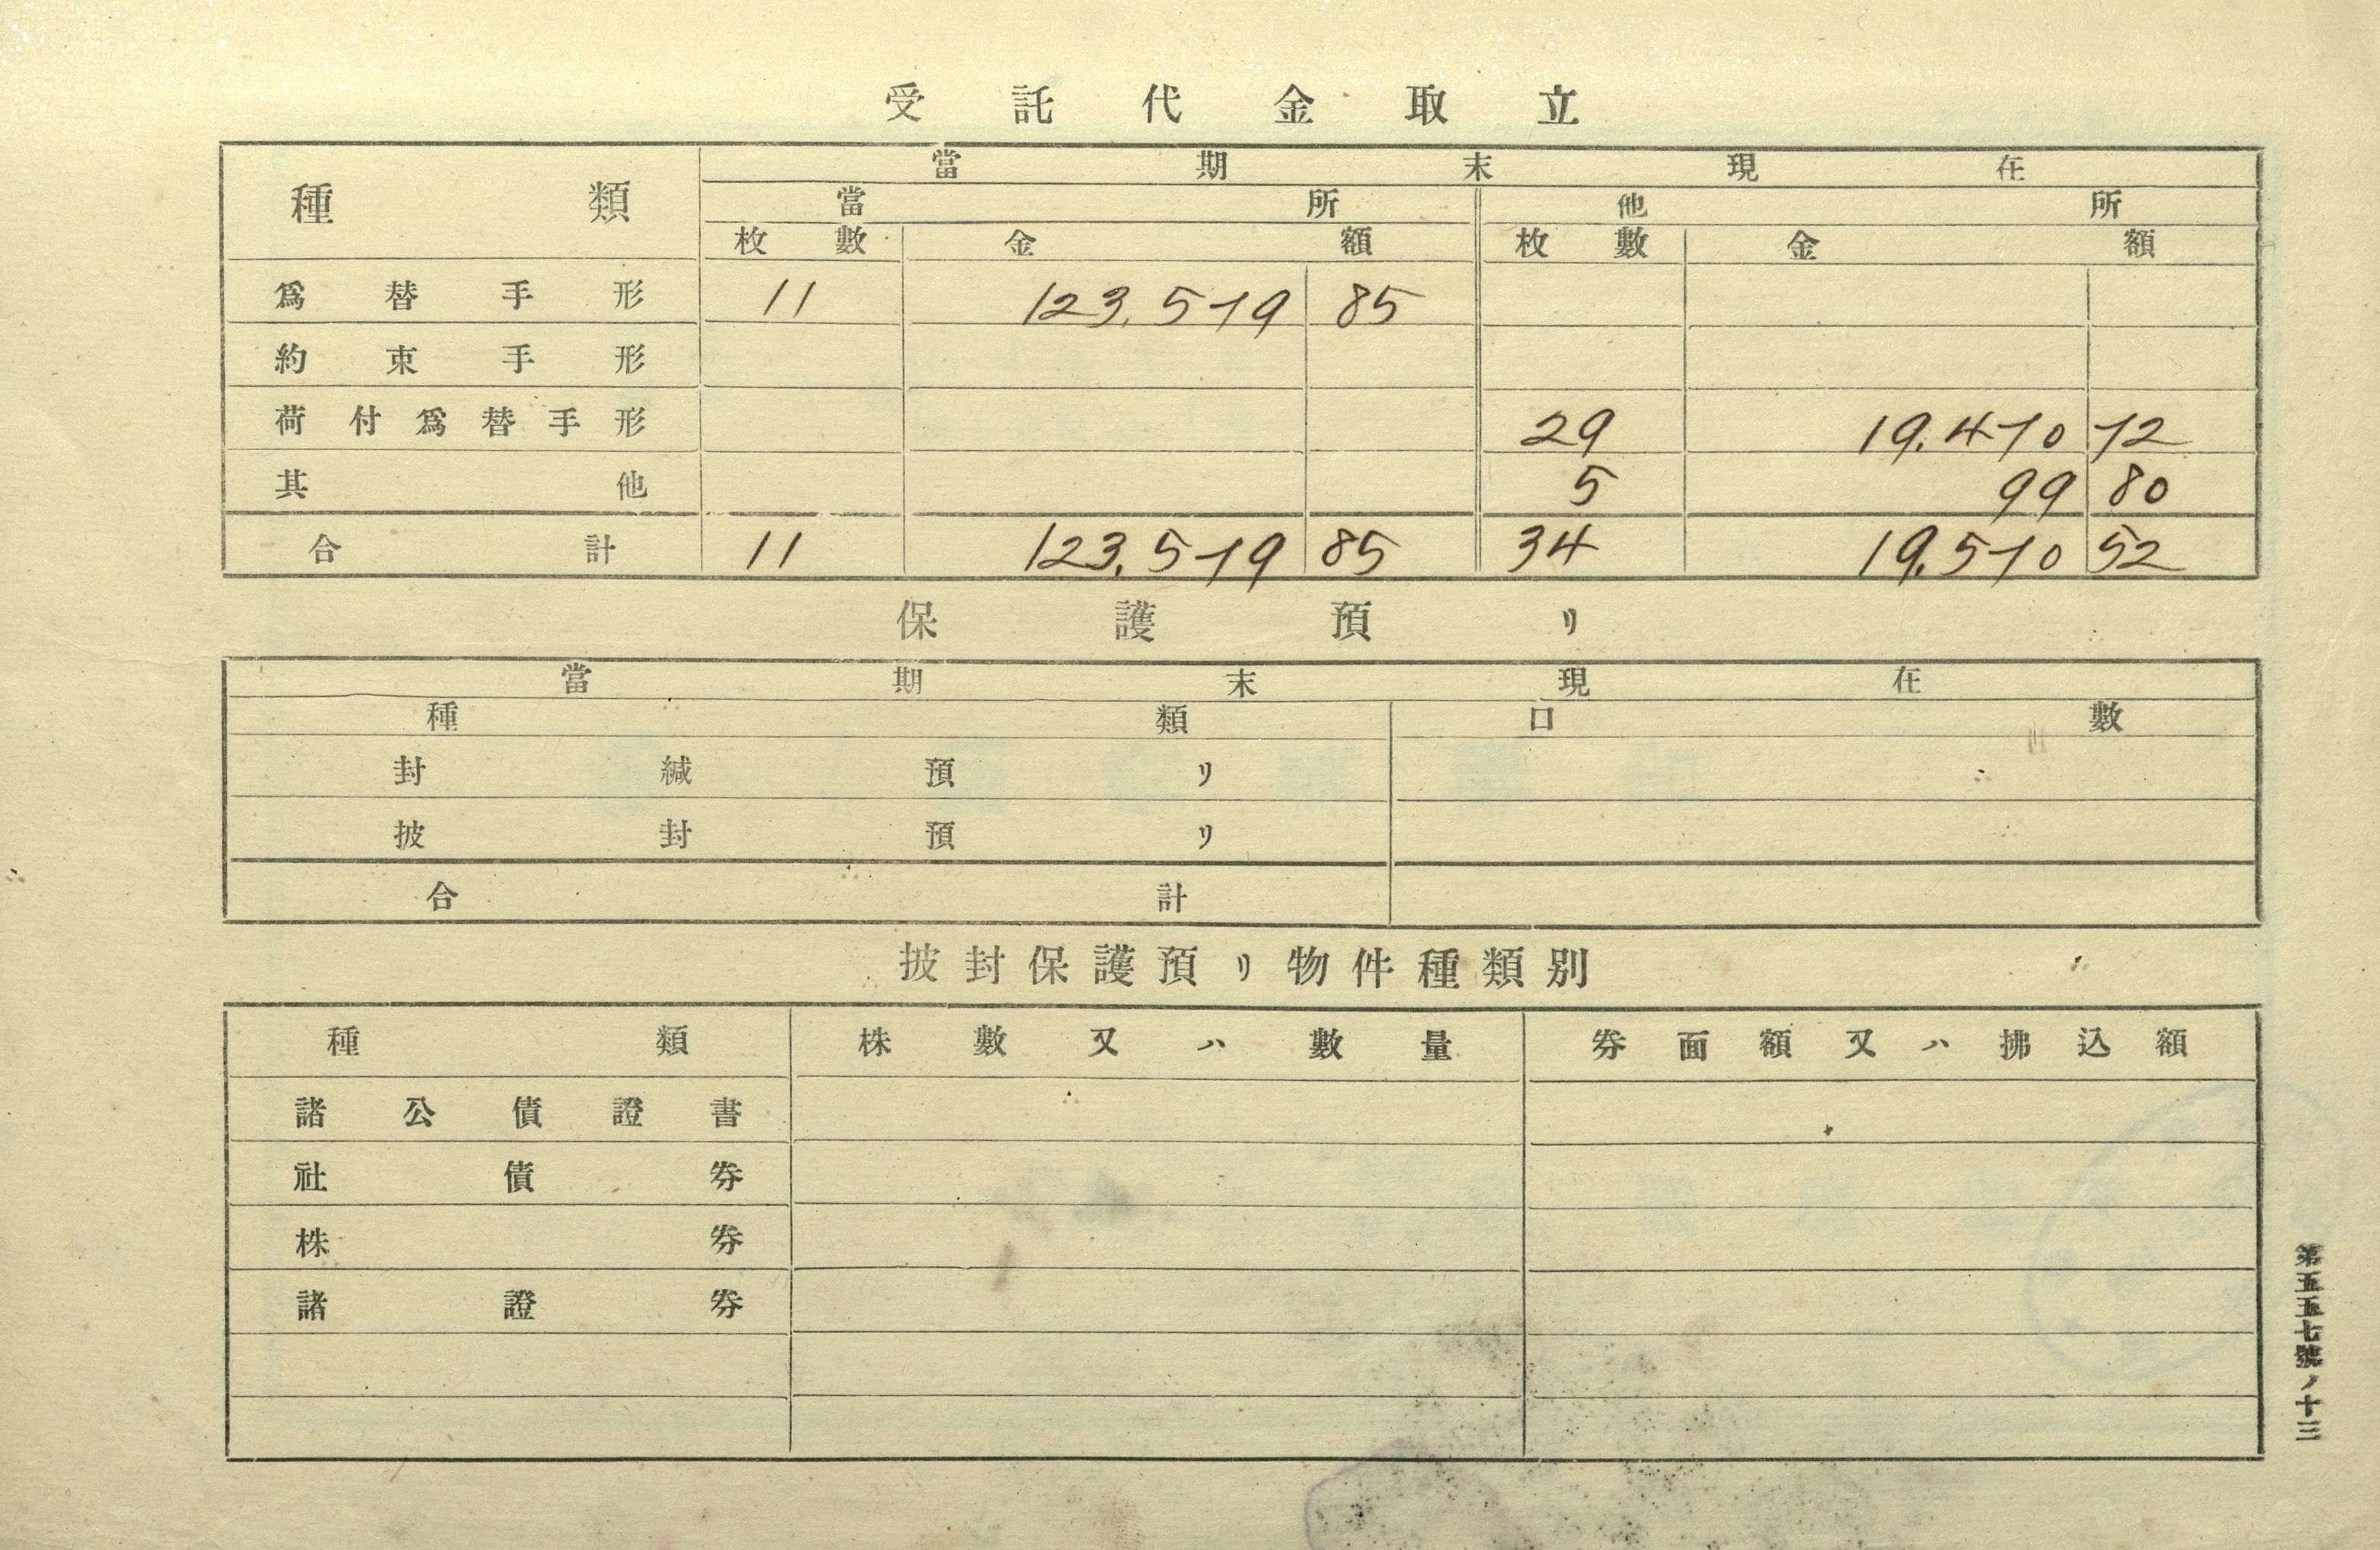 受託代金取立
種類 當期末現在
當所 他所
枚數 金額 枚數 金額
爲替手形 11 123.579 85
約束手形
荷付爲替手形 29 19.470 72
其他 5 99 80
合計 11 123.579 85 34 19.570 52
保護預リ
當期末現在
種類 口數
封緘預リ
披封預リ
合計
披封保護預リ物件種類別
種類 株數又ハ數量 券面額又ハ拂込額
諸公債證書
社債券
株券
諸證券
第五五七號ノ十三